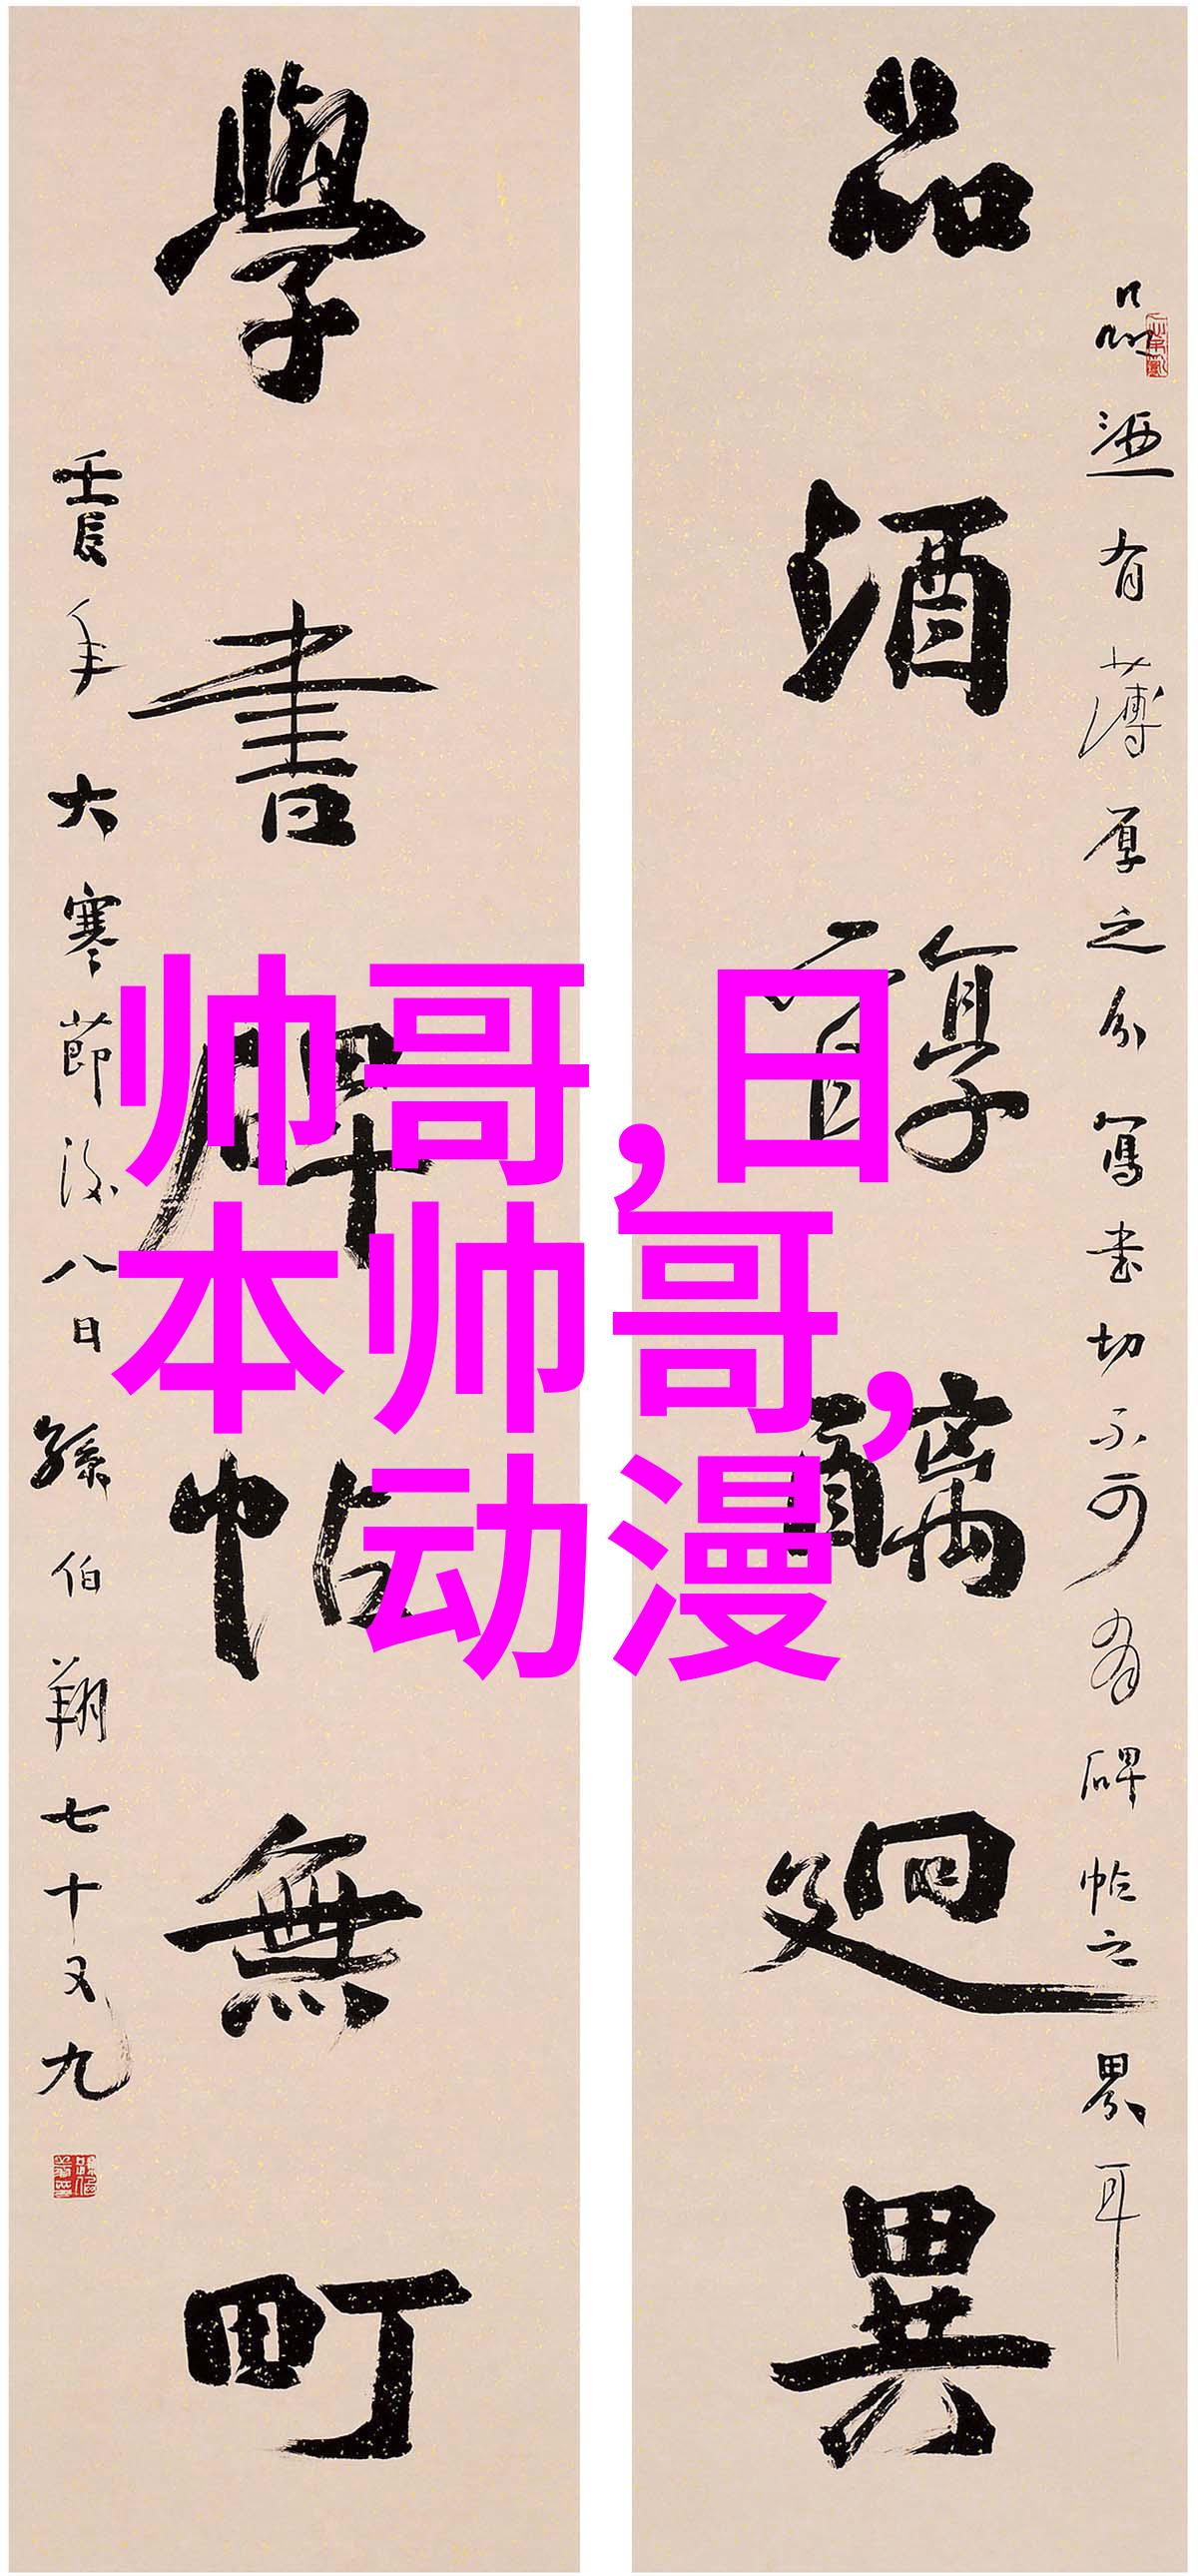 品酒醇醨迥異
品酒有薄厚之分寫書切不可有碑帖之界耳
學書碑帖無町
壬辰年大寒節後八日孫伯翔七十又九
帅哥,日
本帅哥,
动漫